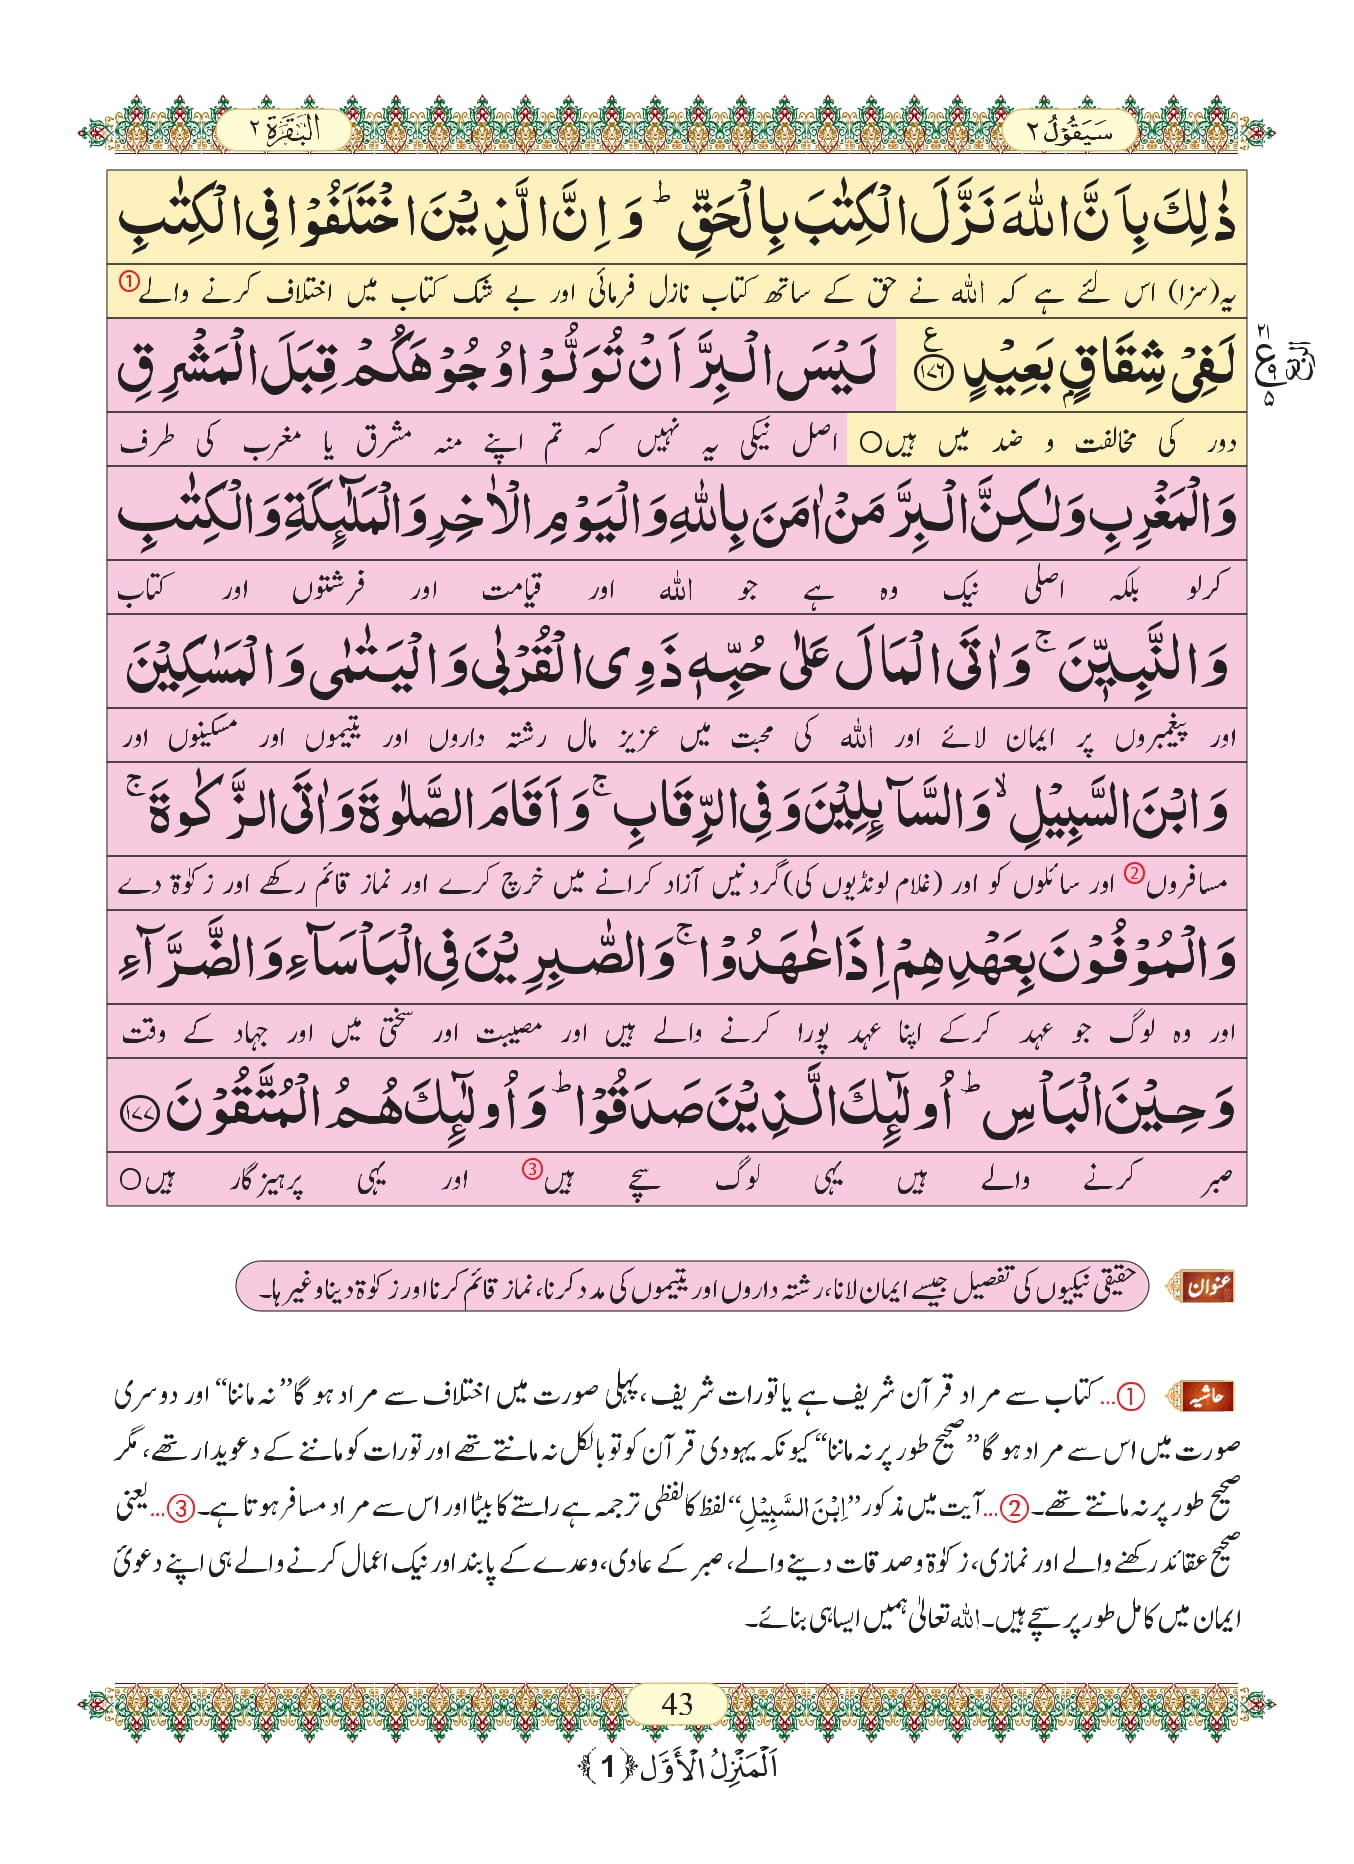 سَيَقُوْلُ ٢
اَلْبَقَرَة ٢
ذٰلِكَ بِاَنَّ اللهَ نَزَّلَ الْكِتٰبَ بِالْحَقِّ ؕ وَ اِنَّ الَّذِيْنَ اخْتَلَفُوْا فِي الْكِتٰبِ
یہ(سزا) اس لئے ہے کہ اللہ نے حق کے ساتھ کتاب نازل فرمائی اور بے شک کتاب میں اختلاف کرنے والے①
لَفِيْ شِقَاقٍۭ بَعِيْدٍ ﴿۱۷۶﴾ ع لَيْسَ الْبِرَّ اَنْ تُوَلُّوْا وُجُوْهَكُمْ قِبَلَ الْمَشْرِقِ
٢١ ع ٩ ٥
دور کی مخالفت و ضد میں ہیں○ اصل نیکی یہ نہیں کہ تم اپنے منہ مشرق یا مغرب کی طرف
وَالْمَغْرِبِ وَلٰكِنَّ الْبِرَّ مَنْ اٰمَنَ بِاللهِ وَالْيَوْمِ الْاٰخِرِ وَالْمَلٰٓئِكَةِ وَالْكِتٰبِ
کرلو بلکہ اصلی نیک وہ ہے جو اللہ اور قیامت اور فرشتوں اور کتاب
وَالنَّبِيّٖنَ ۚ وَاٰتَى الْمَالَ عَلٰى حُبِّهٖ ذَوِي الْقُرْبٰى وَالْيَتٰمٰى وَالْمَسٰكِيْنَ
اور پیغمبروں پر ایمان لائے اور اللہ کی محبت میں عزیز مال رشتہ داروں اور یتیموں اور مسکینوں اور
وَابْنَ السَّبِيْلِ ۙ وَالسَّآئِلِيْنَ وَفِي الرِّقَابِ ۚ وَاَقَامَ الصَّلٰوةَ وَاٰتَى الزَّكٰوةَ ۚ
مسافروں② اور سائلوں کو اور (غلام لونڈیوں کی)گردنیں آزاد کرانے میں خرچ کرے اور نماز قائم رکھے اور زکوٰۃ دے
وَالْمُوْفُوْنَ بِعَهْدِهِمْ اِذَا عٰهَدُوْا ۚ وَالصّٰبِرِيْنَ فِي الْبَاْسَآءِ وَالضَّرَّآءِ
اور وہ لوگ جو عہد کرکے اپنا عہد پورا کرنے والے ہیں اور مصیبت اور سختی میں اور جہاد کے وقت
وَحِيْنَ الْبَاْسِ ؕ اُولٰٓئِكَ الَّذِيْنَ صَدَقُوْا ؕ وَاُولٰٓئِكَ هُمُ الْمُتَّقُوْنَ ﴿۱۷۷﴾
صبر کرنے والے ہیں یہی لوگ سچے ہیں③ اور یہی پرہیزگار ہیں○
عنوان حقیقی نیکیوں کی تفصیل جیسے ایمان لانا،رشتہ داروں اور یتیموں کی مدد کرنا،نماز قائم کرنا اور زکوٰۃ دینا وغیرہا۔
حاشیہ ①... کتاب سے مراد قرآن شریف ہے یا تورات شریف،پہلی صورت میں اختلاف سے مراد ہو گا”نہ ماننا“ اور دوسری
صورت میں اس سے مراد ہو گا”صحیح طور پر نہ ماننا“کیونکہ یہودی قرآن کو تو بالکل نہ مانتے تھے اور تورات کو ماننے کے دعویدار تھے، مگر
صحیح طور پر نہ مانتے تھے۔ ②...آیت میں مذکور”اِبْنَ السَّبِيْلِ“لفظ کا لفظی ترجمہ ہے راستے کا بیٹا اور اس سے مراد مسافر ہوتا ہے۔ ③...یعنی
صحیح عقائد رکھنے والے اور نمازی، زکوٰۃ و صدقات دینے والے، صبر کے عادی،وعدے کے پابند اور نیک اعمال کرنے والے ہی اپنے دعویٔ
ایمان میں کامل طور پر سچے ہیں۔ اللہ تعالٰی ہمیں ایسا ہی بنائے۔
43
اَلْمَنْزِلُ الْاَوَّل ﴿1﴾